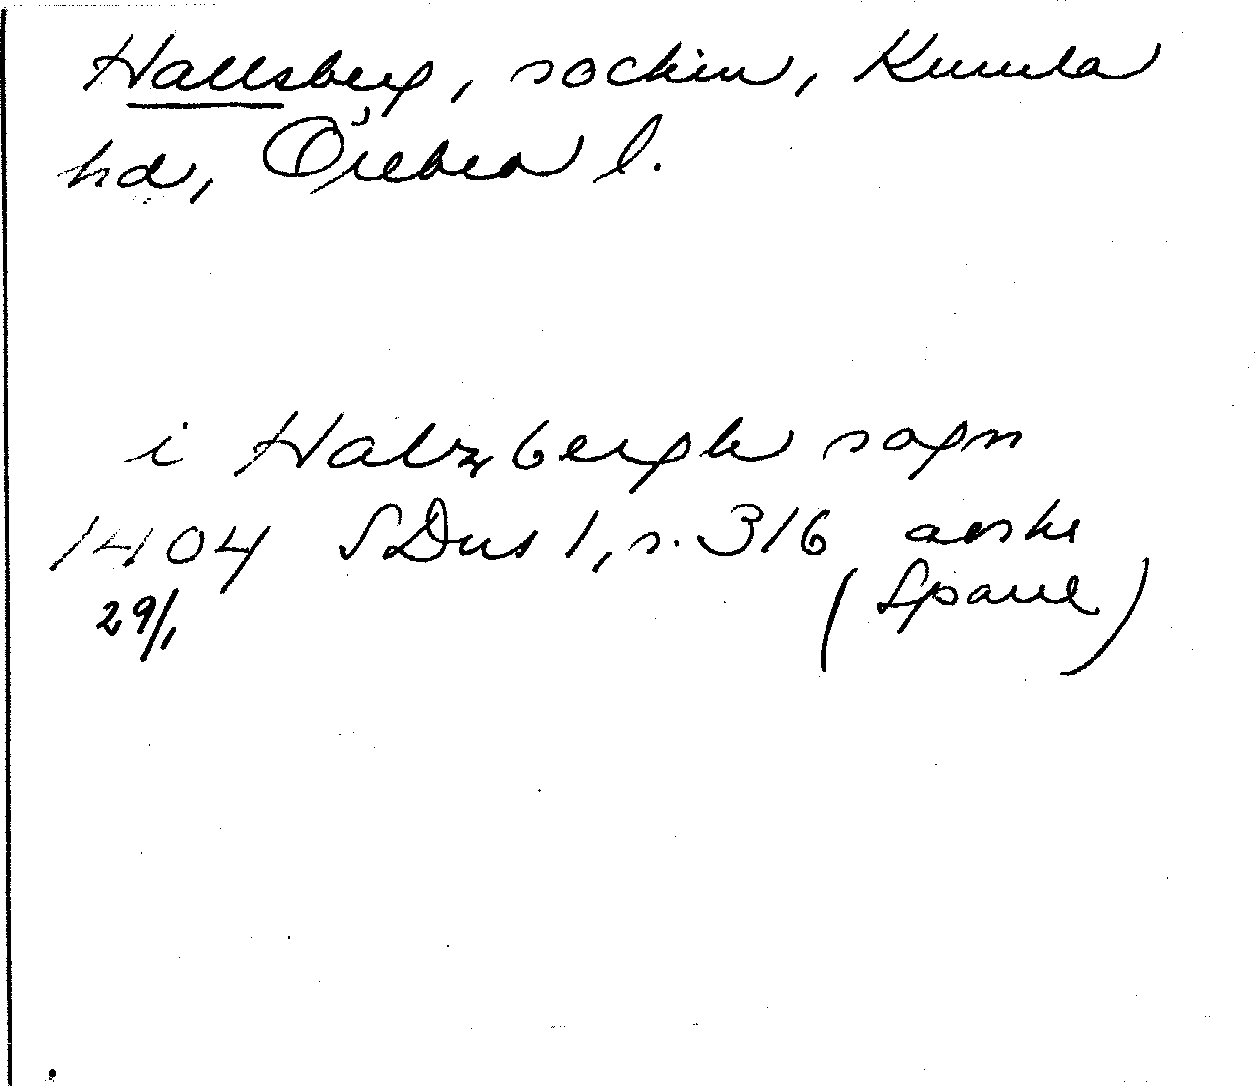 Hallsberg, socken, Kumla
hd, Örebro l.
i Halzbergh sogn
1404 SDns 1, s. 316 avskr
29/1 (Spauл)